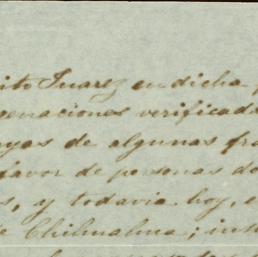 ito Juarez en dicha
enaciones verificada
yas de algunas fra
favor de personas do
s, y todavia hoy, e
e Chihuahua; ins